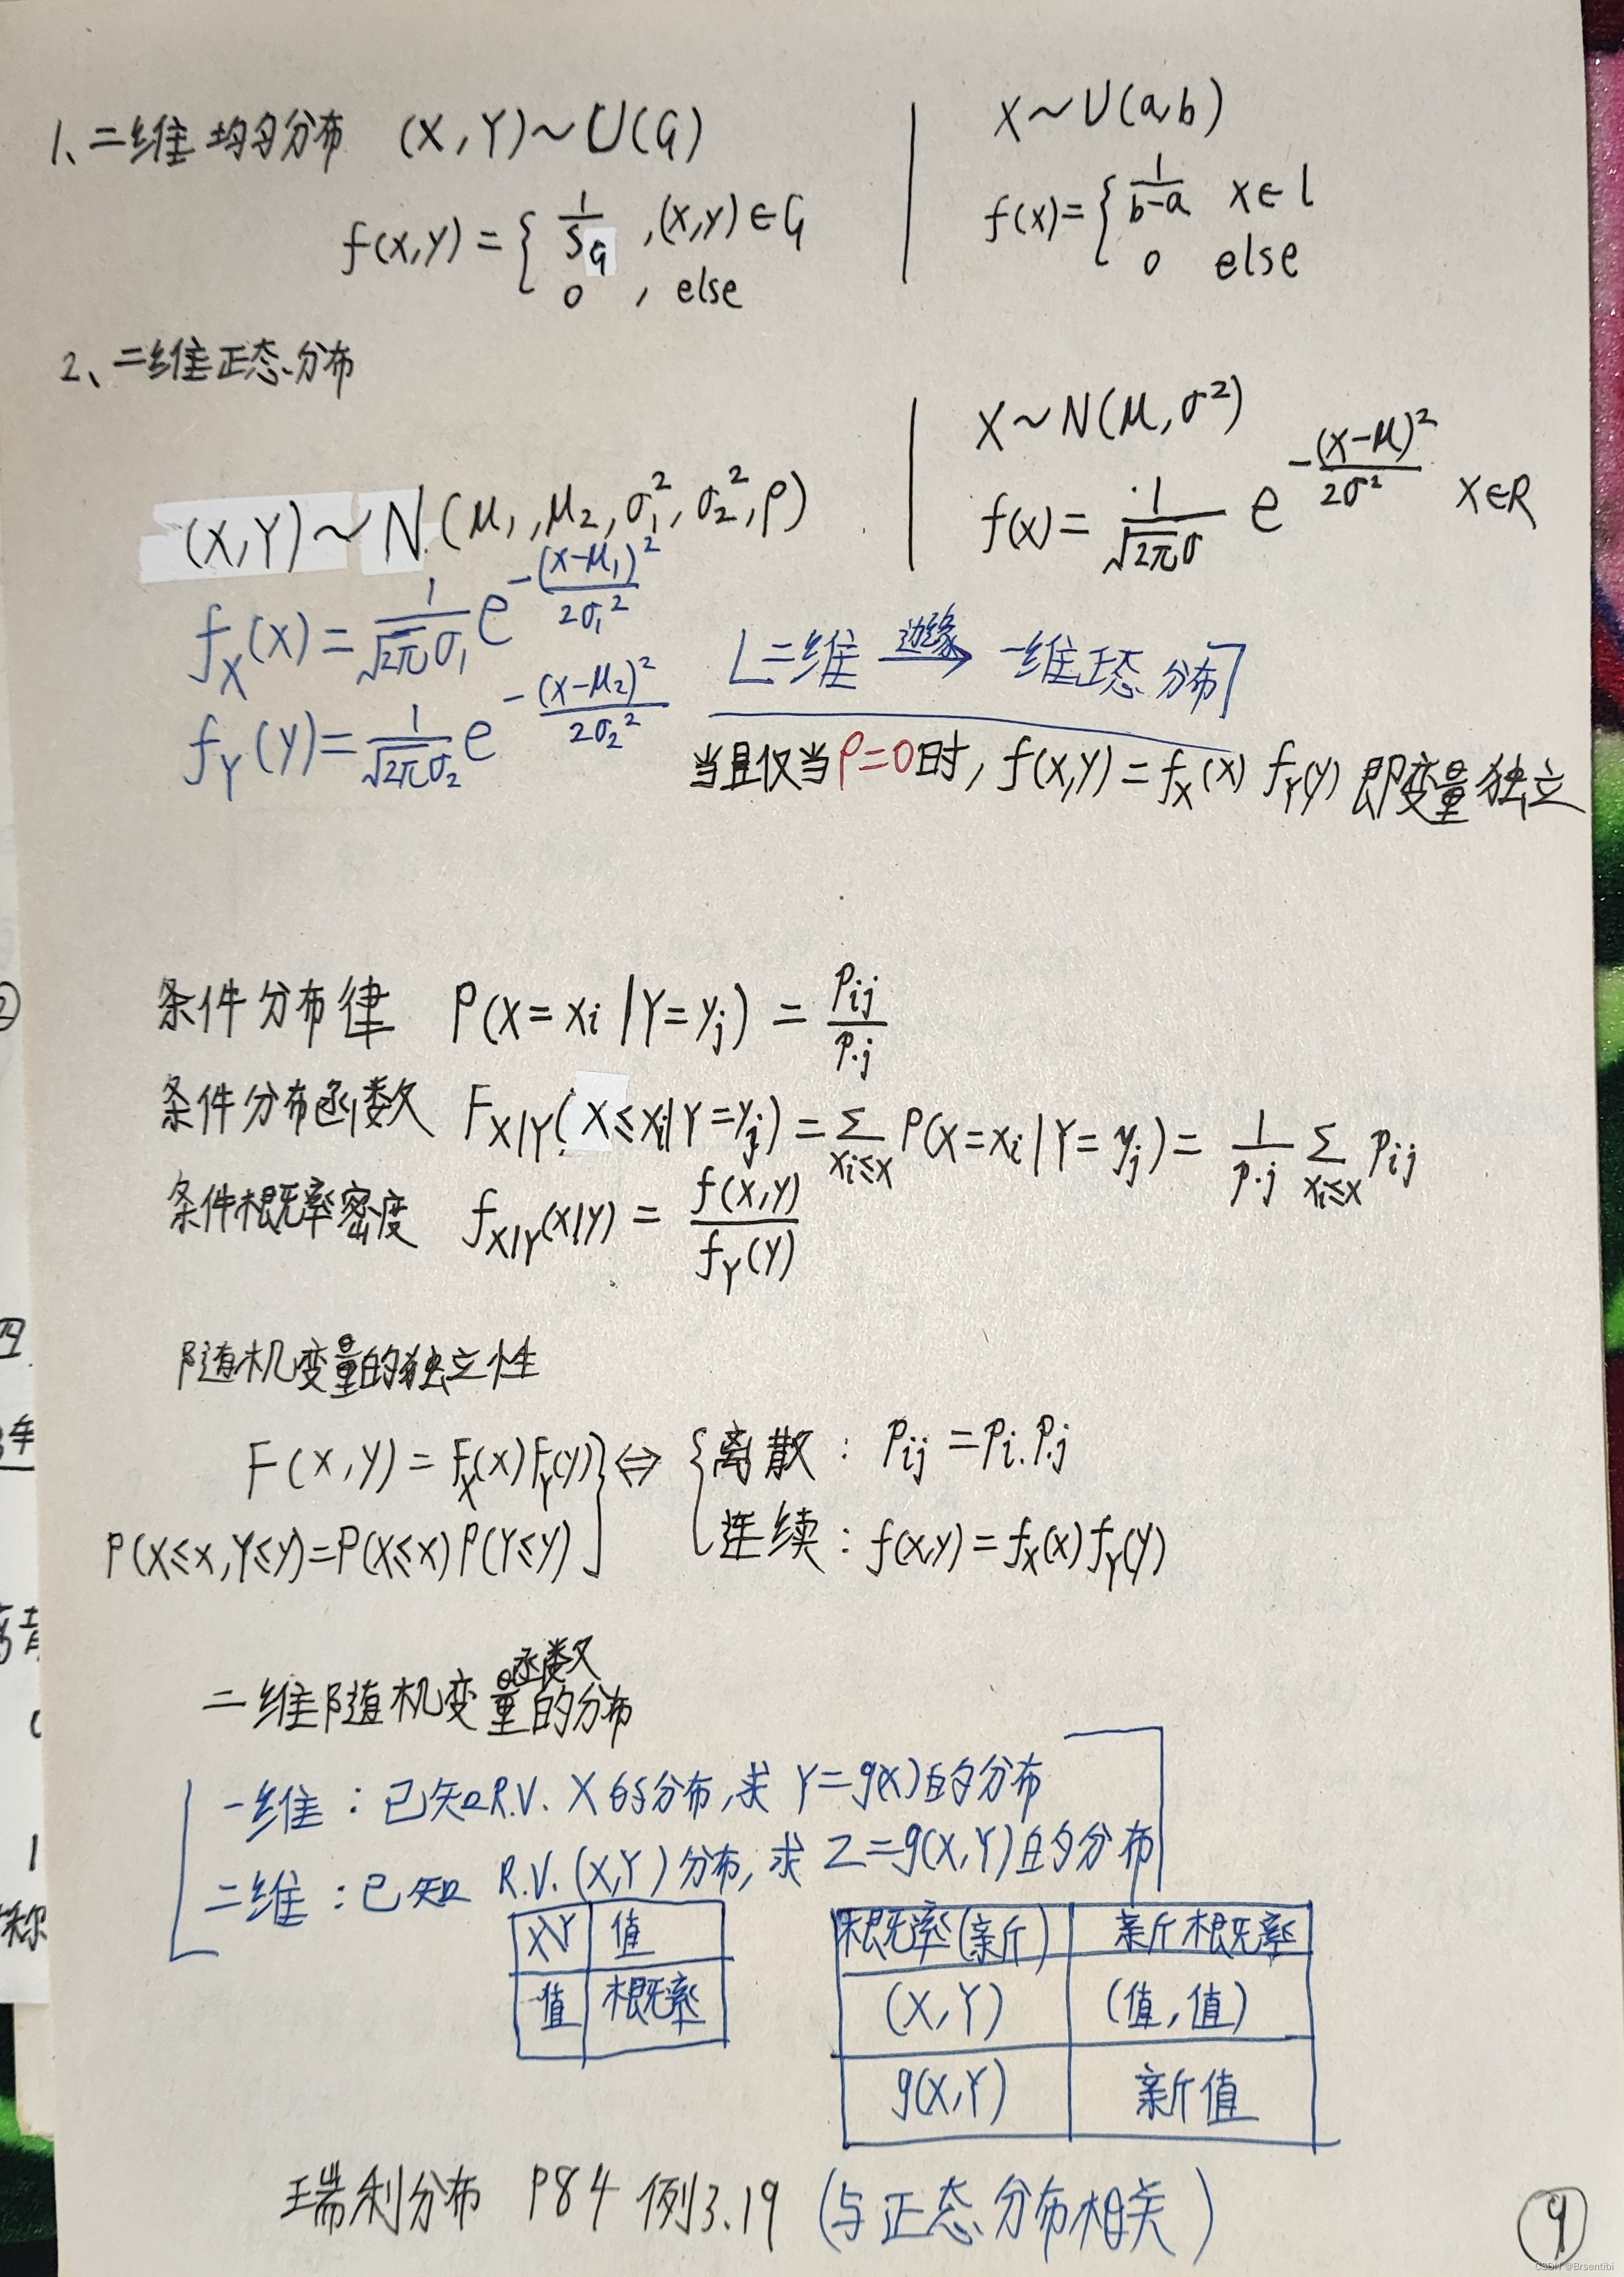 1、二维均匀分布 (X,Y)~U(G)
f(x,y)={ 1/S_G ,(x,y)∈G
0 , else
X~U(a,b)
f(x)={ 1/(b-a) x∈l
0 else
2、二维正态分布
X~N(μ,σ²)
f(x)= 1/(√2π σ) e^(-(x-μ)²/2σ²) x∈R
(X,Y)~N(μ₁,μ₂,σ₁²,σ₂²,ρ)
f_X(x)= 1/(√2π σ₁) e^(-(x-μ₁)²/2σ₁²)
f_Y(y)= 1/(√2π σ₂) e^(-(x-μ₂)²/2σ₂²)
[二维 边缘→ 一维正态分布]
当且仅当ρ=0时, f(x,y)=f_X(x) f_Y(y) 即变量独立
条件分布律 P(X=xi|Y=yj) = pij/p.j
条件分布函数 F_X|Y(X≤xi|Y=yj)=Σ_(xi≤x) P(X=xi|Y=yj)= 1/p.j Σ_(xi≤x) pij
条件概率密度 f_X|Y(x|y) = f(x,y)/f_Y(y)
随机变量的独立性
F(x,y)=F_X(x)F_Y(y) } ⇔ { 离散: pij=pi.p.j
P(X≤x,Y≤y)=P(X≤x)P(Y≤y) 连续: f(x,y)=f_X(x)f_Y(y)
二维随机变量函数的分布
一维:已知R.V. X的分布,求 Y=g(x)的分布
二维:已知 R.V.(X,Y)分布,求 Z=g(X,Y)的分布
X\Y 值
值 概率
概率(新) 新概率
(X,Y) (值,值)
g(X,Y) 新值
瑞利分布 P84 例3.19 (与正态分布相关)
9
CSDN @Brsentibi